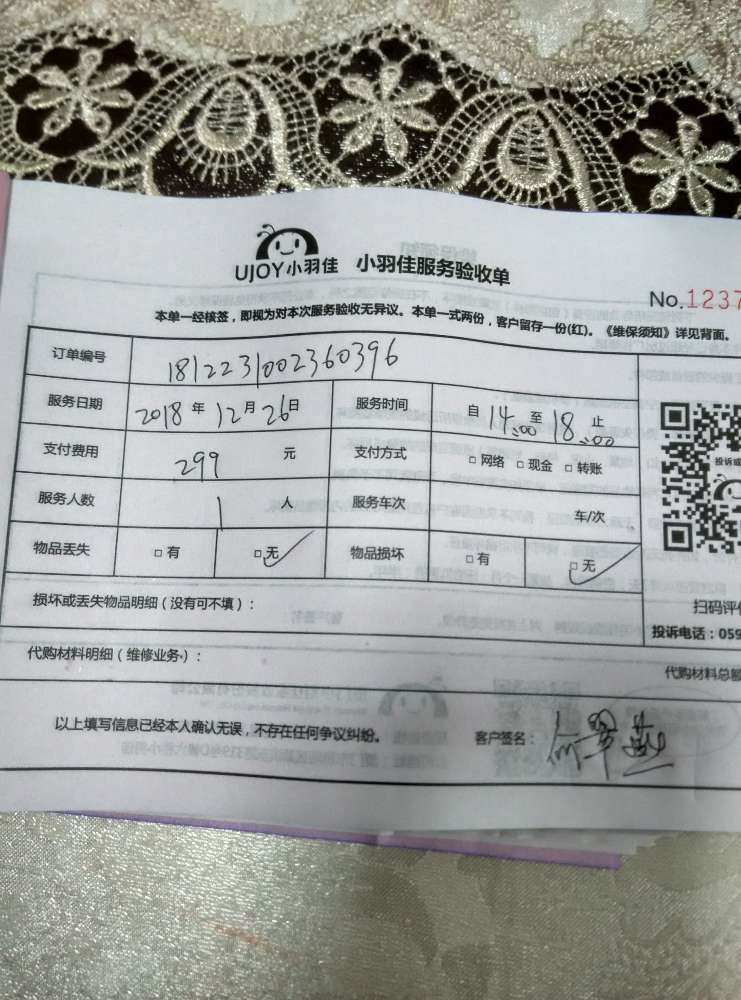 UJOY小羽佳 小羽佳服务验收单
No.1237
本单一经核签，即视为对本次服务验收无异议。本单一式两份，客户留存一份(红)。《维保须知》详见背面。
订单编号 1812231002360396
服务日期 2018年12月26日 服务时间 自14:00至18:00止
支付费用 299元 支付方式 □网络 □现金 □转账
服务人数 1人 服务车次 车/次
物品丢失 □有 □无 物品损坏 □有 □无
投诉或
损坏或丢失物品明细（没有可不填）：
扫码评
投诉电话：059
代购材料明细（维修业务）：
代购材料总额
以上填写信息已经本人确认无误，不存在任何争议纠纷。 客户签名：